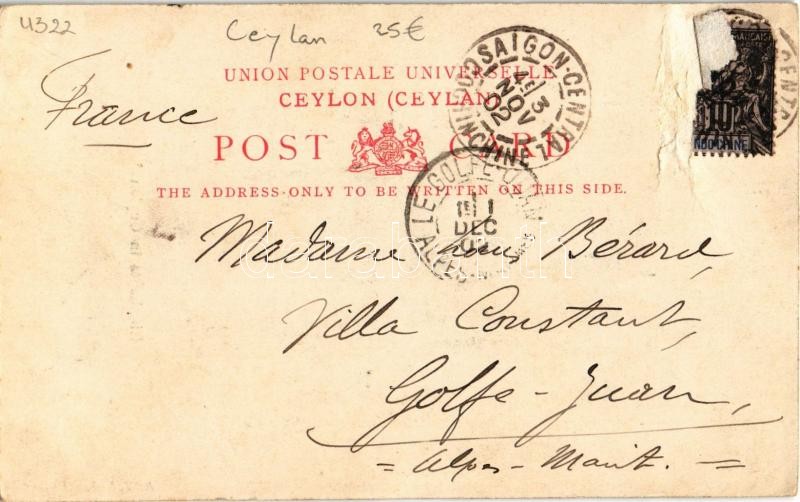 4322
Ceylan 25€
UNION POSTALE UNIVERSELLE
CEYLON (CEYLAN)
France
POST CARD
THE ADDRESS ONLY TO BE WRITTEN ON THIS SIDE.
SAIGON-CENTRAL
3
NOV
02
COCHINCHINE
LE GOLFE-JUAN
11
DEC
02
ALPES
FRANÇAISE
10
INDO-CHINE
CENTRA
Madame Bérard,
Villa Constant,
Golfe-Juan,
= Alpes-Marit. =